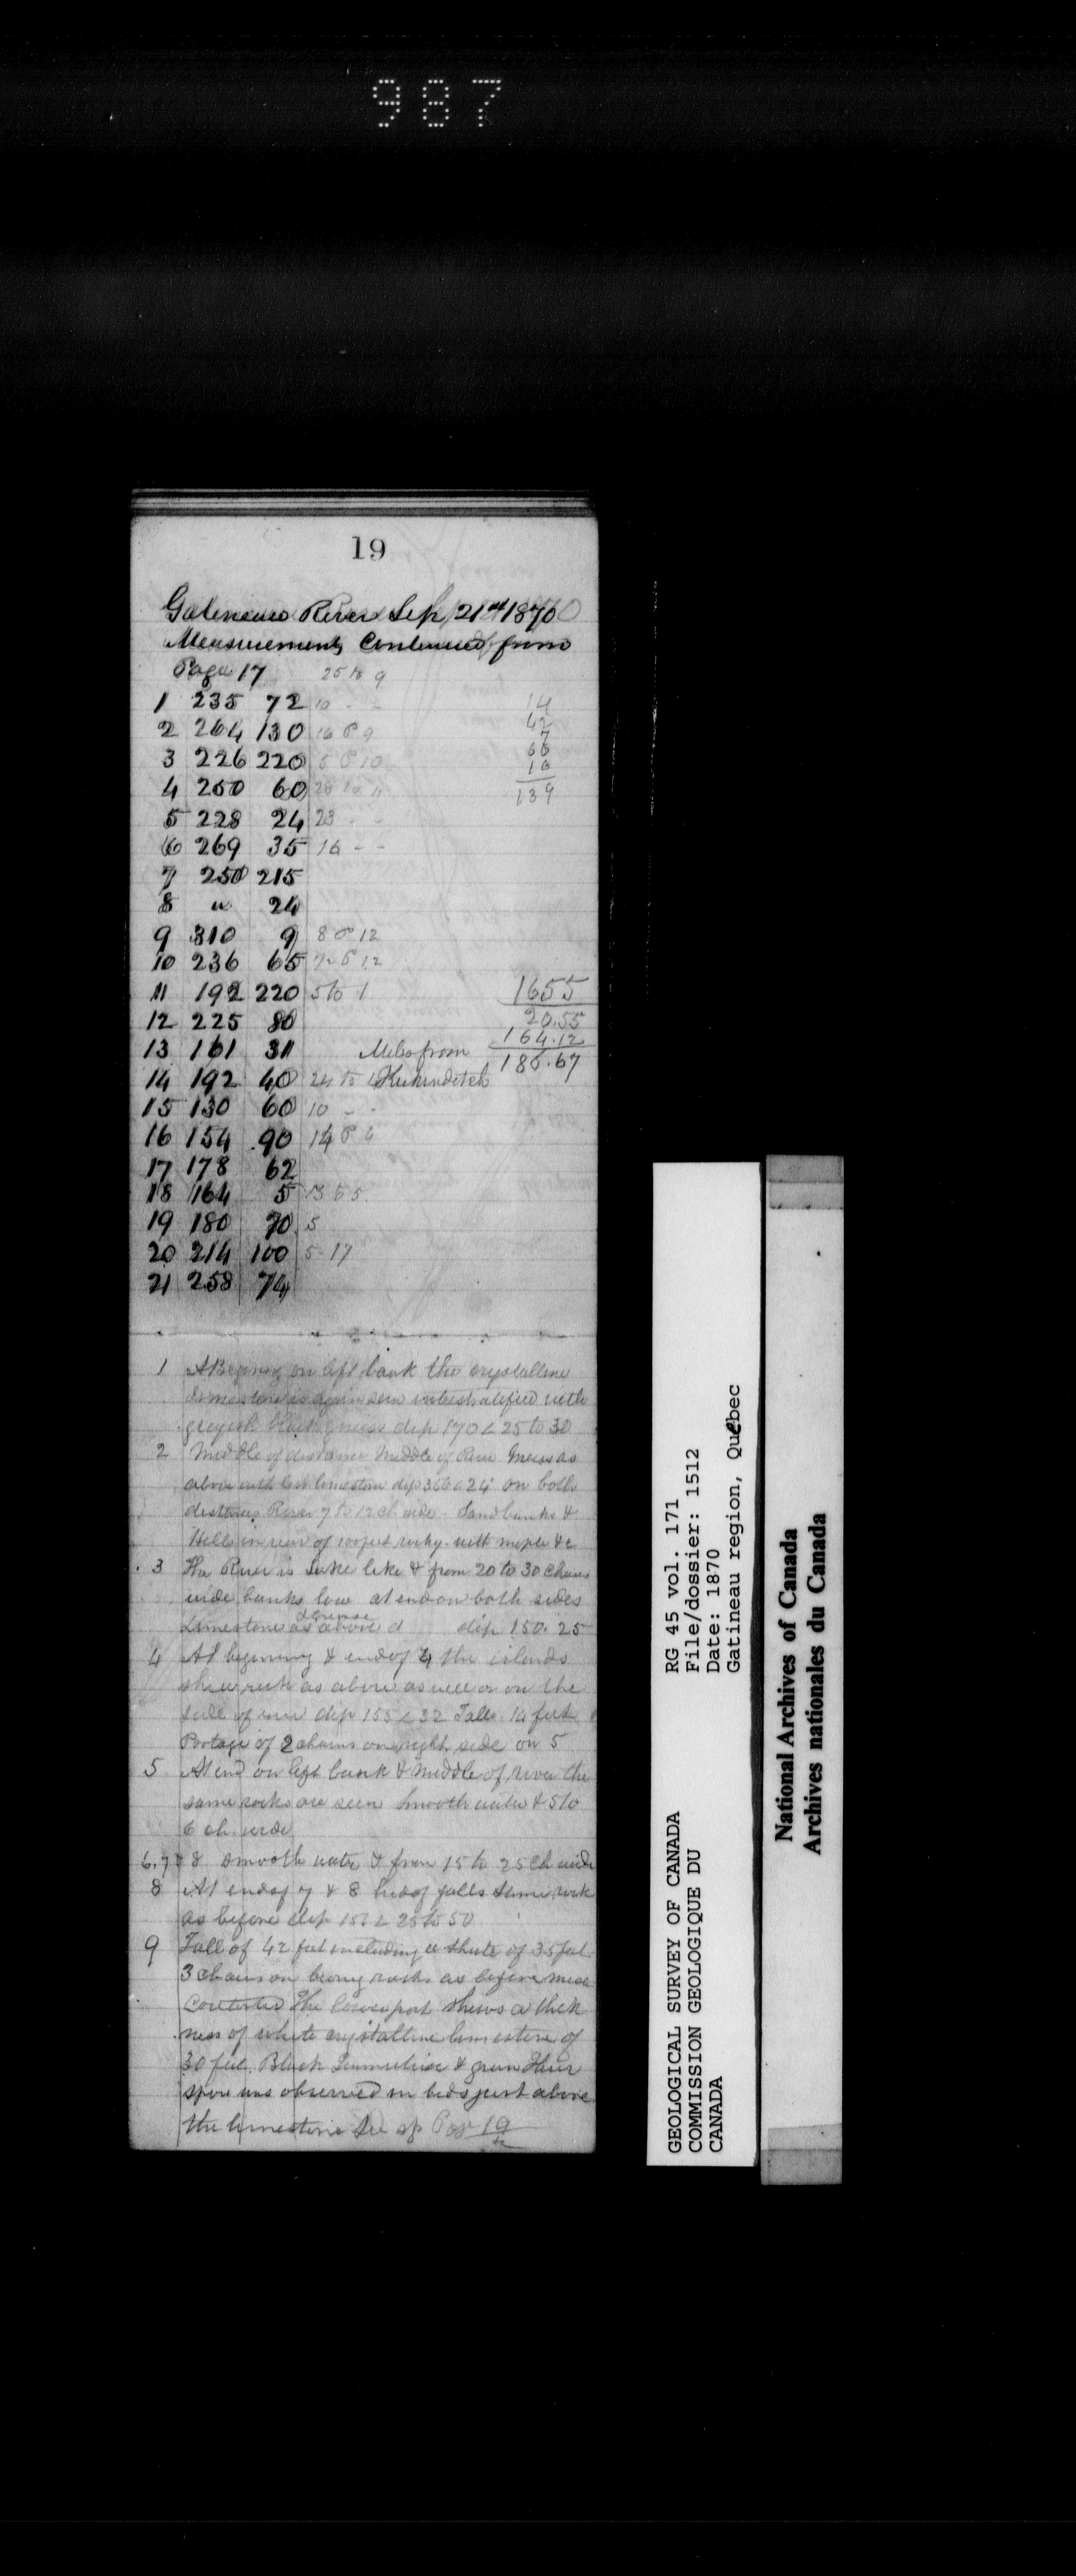 987
19
Gatineau River Sep 21st 1870
Measurements Continued from
Page 17 25 to 9
1 235 72 10 - -
2 264 130 16 to 9
3 226 220 5 to 10
4 250 60 28 to 11
5 228 24 23 - -
6 269 35 16 - -
7 250 215
8 " 24
9 310 9 8 to 12
10 236 65 72 to 12
11 192 220 5 to 1
12 225 80
13 161 31 Miles from
14 192 40 24 to
15 130 60 10 - -
16 154 90 14 to 6
17 178 62
18 164 5 13 to 5
19 180 70 5
20 214 100 5 17
21 258 74
14
42
7
66
16
139
1655
20.55
164.12
185.67
1 At on left bank the crystalline
limestone is again seen interstratified with
greyish black gneiss dip 170 < 25 to 30
2 Middle of distance Middle of River Gneiss as
above with less limestone dip 356 < 24 on both
distances River 7 to 12 ch wide Sand banks &
Hills in rear of 100 feet rocky with maple &c
3 The River is Lake like & from 20 to 30 chains
wide banks low at end on both sides
Limestone as above d dip 150. 25
4 At beginning & end of 4 the islands
shew rock as above as well as on the
side of river dip 155 < 32 Falls 14 feet
Portage of 2 chains on right side on 5
5 At end on left bank & middle of river the
same rocks are seen Smooth water & 5 to
6 ch. wide
6. 7 & 8 Smooth water & from 15 to 25 Ch wide
8 At end of 7 & 8 head of falls same rock
as before dip 157 < 25 to 50
9 Fall of 42 feet including a shute of 35 feet
3 chains on being rocks as before
Contorted The lower part shews a thick
ness of white crystalline limestone of
30 feet. Black & green
spar was observed in beds just above
the limestone See sp 19
GEOLOGICAL SURVEY OF CANADA
COMMISSION GEOLOGIQUE DU
CANADA
RG 45 vol. 171
File/dossier: 1512
Date: 1870
Gatineau region, Québec
National Archives of Canada
Archives nationales du Canada